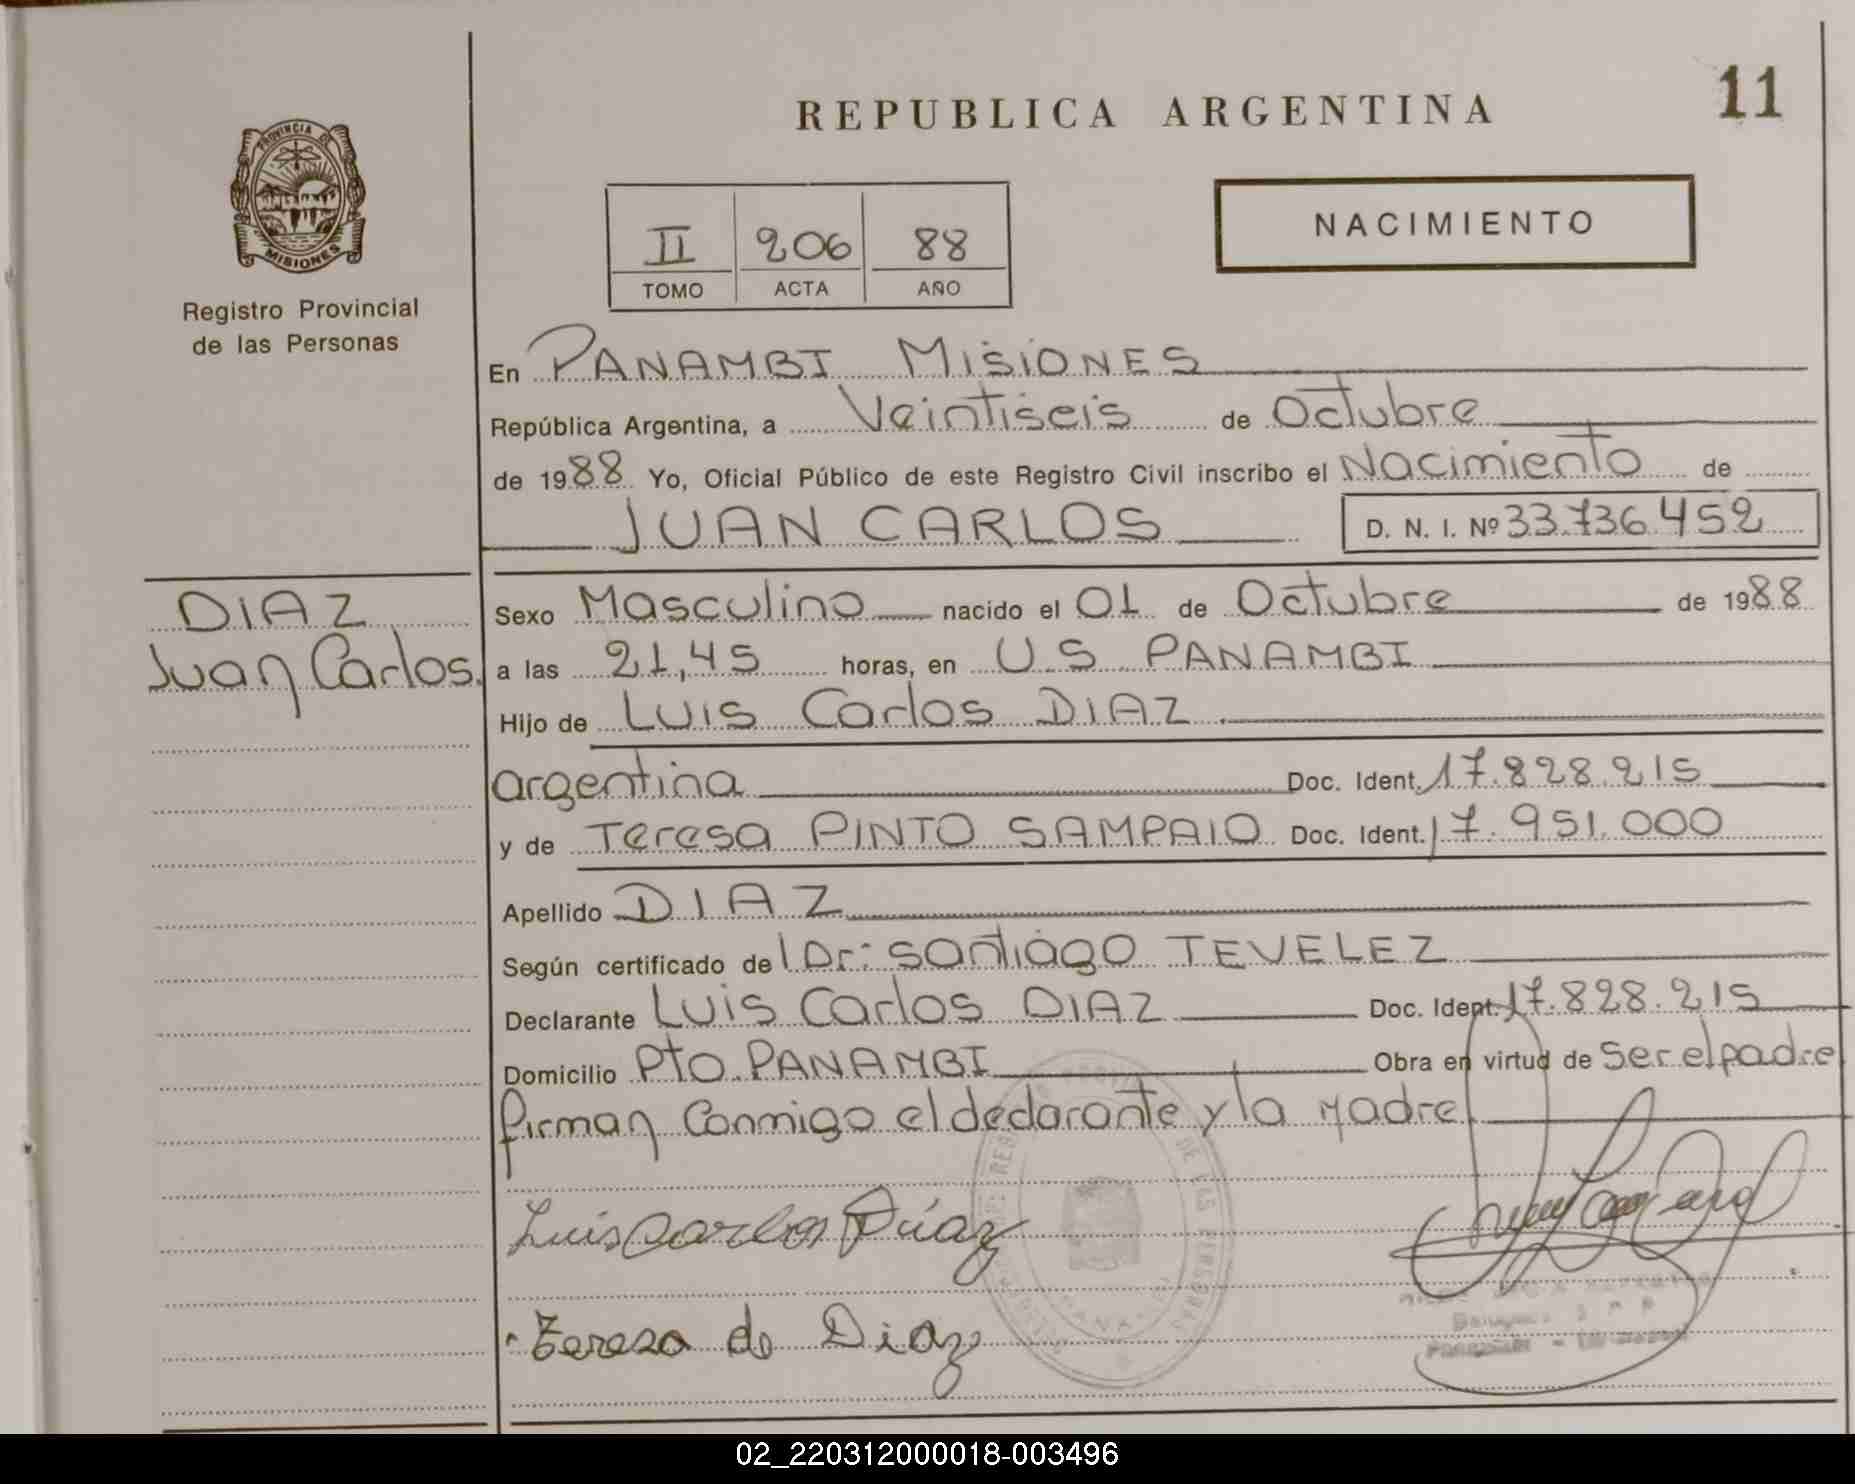 11
REPUBLICA ARGENTINA
PROVINCIA DE
MISIONES
NACIMIENTO
II 206 88
TOMO ACTA AÑO
Registro Provincial
de las Personas
En PANAMBI MISIONES
República Argentina, a Veintiseis de Octubre
de 1988 Yo, Oficial Público de este Registro Civil inscribo el Nacimiento de
JUAN CARLOS D. N. I. Nº 33.736.452
DIAZ
Juan Carlos.
Sexo Masculino nacido el 01 de Octubre de 1988
a las 21,45 horas, en U.S PANAMBI
Hijo de LUIS Carlos DIAZ
argentina Doc. Ident. 17.828.215
y de Teresa PINTO SAMPAIO Doc. Ident. 17.951.000
Apellido DIAZ
Según certificado del Dr: Santiago TEVELEZ
Declarante Luis Carlos DIAZ Doc. Ident. 17.828.215
Domicilio Pto. PANAMBI Obra en virtud de Ser el padre
firman Conmigo el declarante y la Madre
Luis Carlos Díaz
Teresa de Diaz
DE LAS PERSONAS
02_220312000018-003496